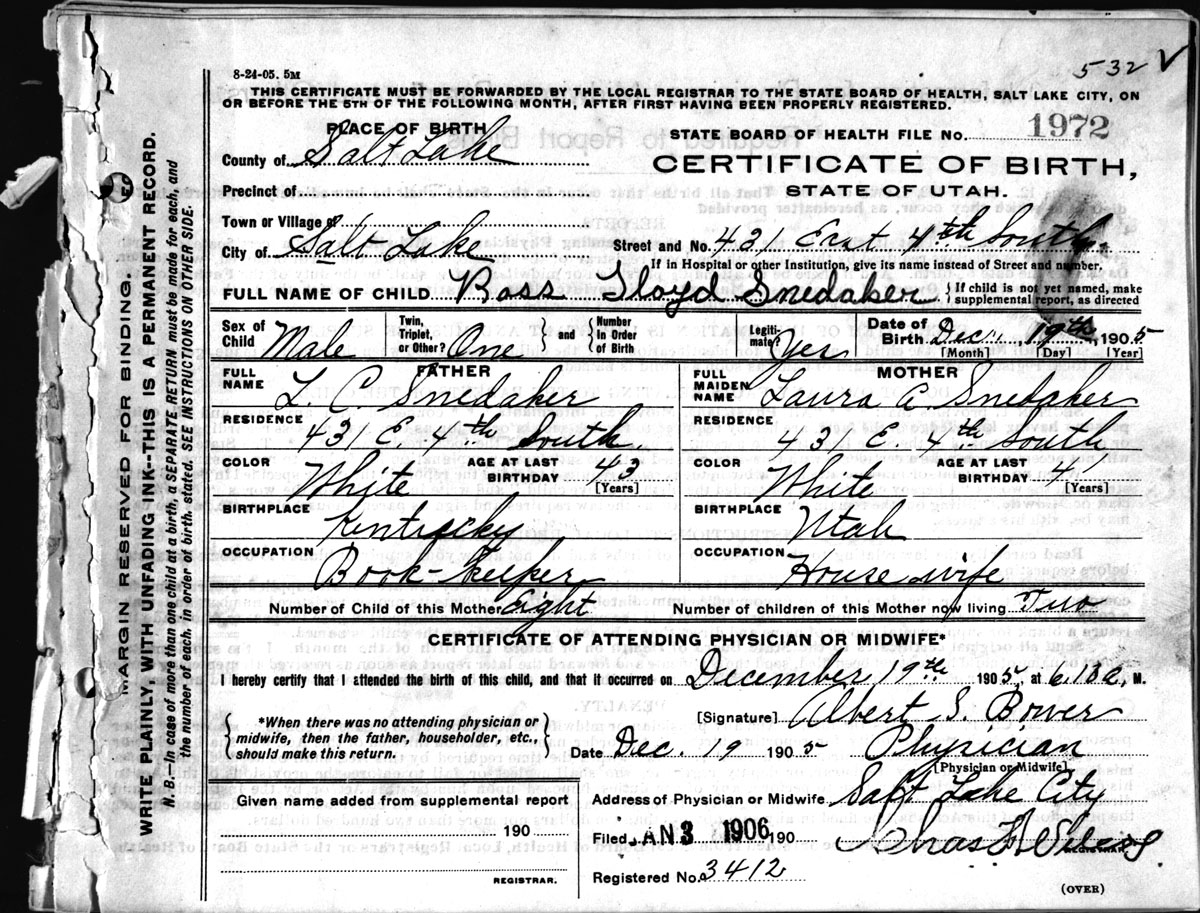 532 V
8-24-05. 5M
THIS CERTIFICATE MUST BE FORWARDED BY THE LOCAL REGISTRAR TO THE STATE BOARD OF HEALTH, SALT LAKE CITY, ON
OR BEFORE THE 5TH OF THE FOLLOWING MONTH, AFTER FIRST HAVING BEEN PROPERLY REGISTERED.
PLACE OF BIRTH
STATE BOARD OF HEALTH FILE NO. 1972
County of Salt Lake
CERTIFICATE OF BIRTH,
Precinct of
STATE OF UTAH.
Town or Village of
City of Salt Lake Street and No. 431 East 4th South.
If in Hospital or other Institution, give its name instead of Street and number.
FULL NAME OF CHILD Ross Lloyd Snedaker { If child is not yet named, make supplemental report, as directed
Sex of Child Male Twin, Triplet, or Other? One } and { Number in Order of Birth Legiti-mate? Yes Date of Birth Dec. 19th, 1905
[Month] [Day] [Year]
FATHER MOTHER
FULL NAME L. C. Snedaker FULL MAIDEN NAME Laura A. Snedaker
RESIDENCE 431 E. 4th South RESIDENCE 431 E. 4th South
COLOR White AGE AT LAST BIRTHDAY 43 [Years] COLOR White AGE AT LAST BIRTHDAY 41 [Years]
BIRTHPLACE Kentucky BIRTHPLACE Utah
OCCUPATION Book-keeper OCCUPATION House wife
Number of Child of this Mother Eight Number of children of this Mother now living Two
CERTIFICATE OF ATTENDING PHYSICIAN OR MIDWIFE*
I hereby certify that I attended the birth of this child, and that it occurred on December 19th 1905, at 6.18 a. M.
*When there was no attending physician or
midwife, then the father, householder, etc.,
should make this return.
[Signature] Albert S. Bower
Date Dec. 19 1905 Physician
[Physician or Midwife]
Given name added from supplemental report
190
REGISTRAR.
Address of Physician or Midwife Salt Lake City
Filed JAN 3 1906 190
REGISTRAR.
Registered No. 3412
(OVER)
MARGIN RESERVED FOR BINDING.
WRITE PLAINLY, WITH UNFADING INK--THIS IS A PERMANENT RECORD.
N. B.—In case of more than one child at a birth, a SEPARATE RETURN must be made for each, and
the number of each, in order of birth, stated. SEE INSTRUCTIONS ON OTHER SIDE.